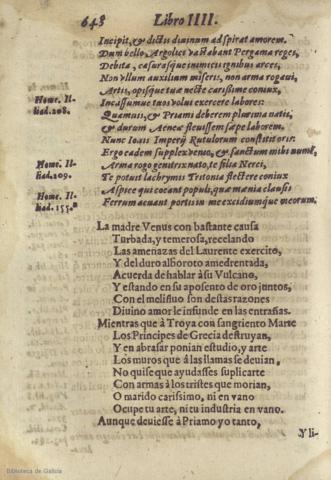 648 Libro IIII.
Incipit, & dictis diuinum adspirat amorem.
Dum bello Argolici vastabant Pergama reges,
Debita, casurasque inimicis ignibus arces,
Non vllum auxilium miseris, non arma rogaui,
Artis, opisque tuæ nec te carissime coniux,
Home. Il-
liad.208.
Incassumue tuos volui exercere labores:
Quamuis, & Priami deberem plurima natis,
& durum Aeneæ fleuissem sæpe laborem.
Nunc Iouis Imperijs Rutulorum constitit oris:
Ergo eadem supplex venio, & sanctum mihi numē,
Home. Il-
liad.209.
Arma rogo genitrix nato, te filia Nerei,
Te potuit lachrymis Tritonia flectere coniux
Home. Il-
liad.155.
Aspice qui coeant populi, quæ mænia clausis
Ferrum acuant portis in me excidiumque meorum.
La madre Venus con bastante causa
Turbada, y temerosa, recelando
Las amenazas del Laurente exercito,
Y del duro alboroto amedrentada,
Acuerda de hablar à su Vulcano,
Y estando en su aposento de oro juntos,
Con el melifluo son destas razones
Diuino amor le infunde en las entrañas.
Mientras que à Troya con sangriento Marte
Los Principes de Grecia destruyan,
Y en abrasar ponian estudio, y arte
Los muros que à las llamas se deuian,
No quise que ayudasses suplicarte
Con armas à los tristes que morian,
O marido carissimo, ni en vano
Ocupe tu arte, ni tu industria en vano.
Aunque deuiesse à Priamo yo tanto,
Y li-
Biblioteca de Galicia